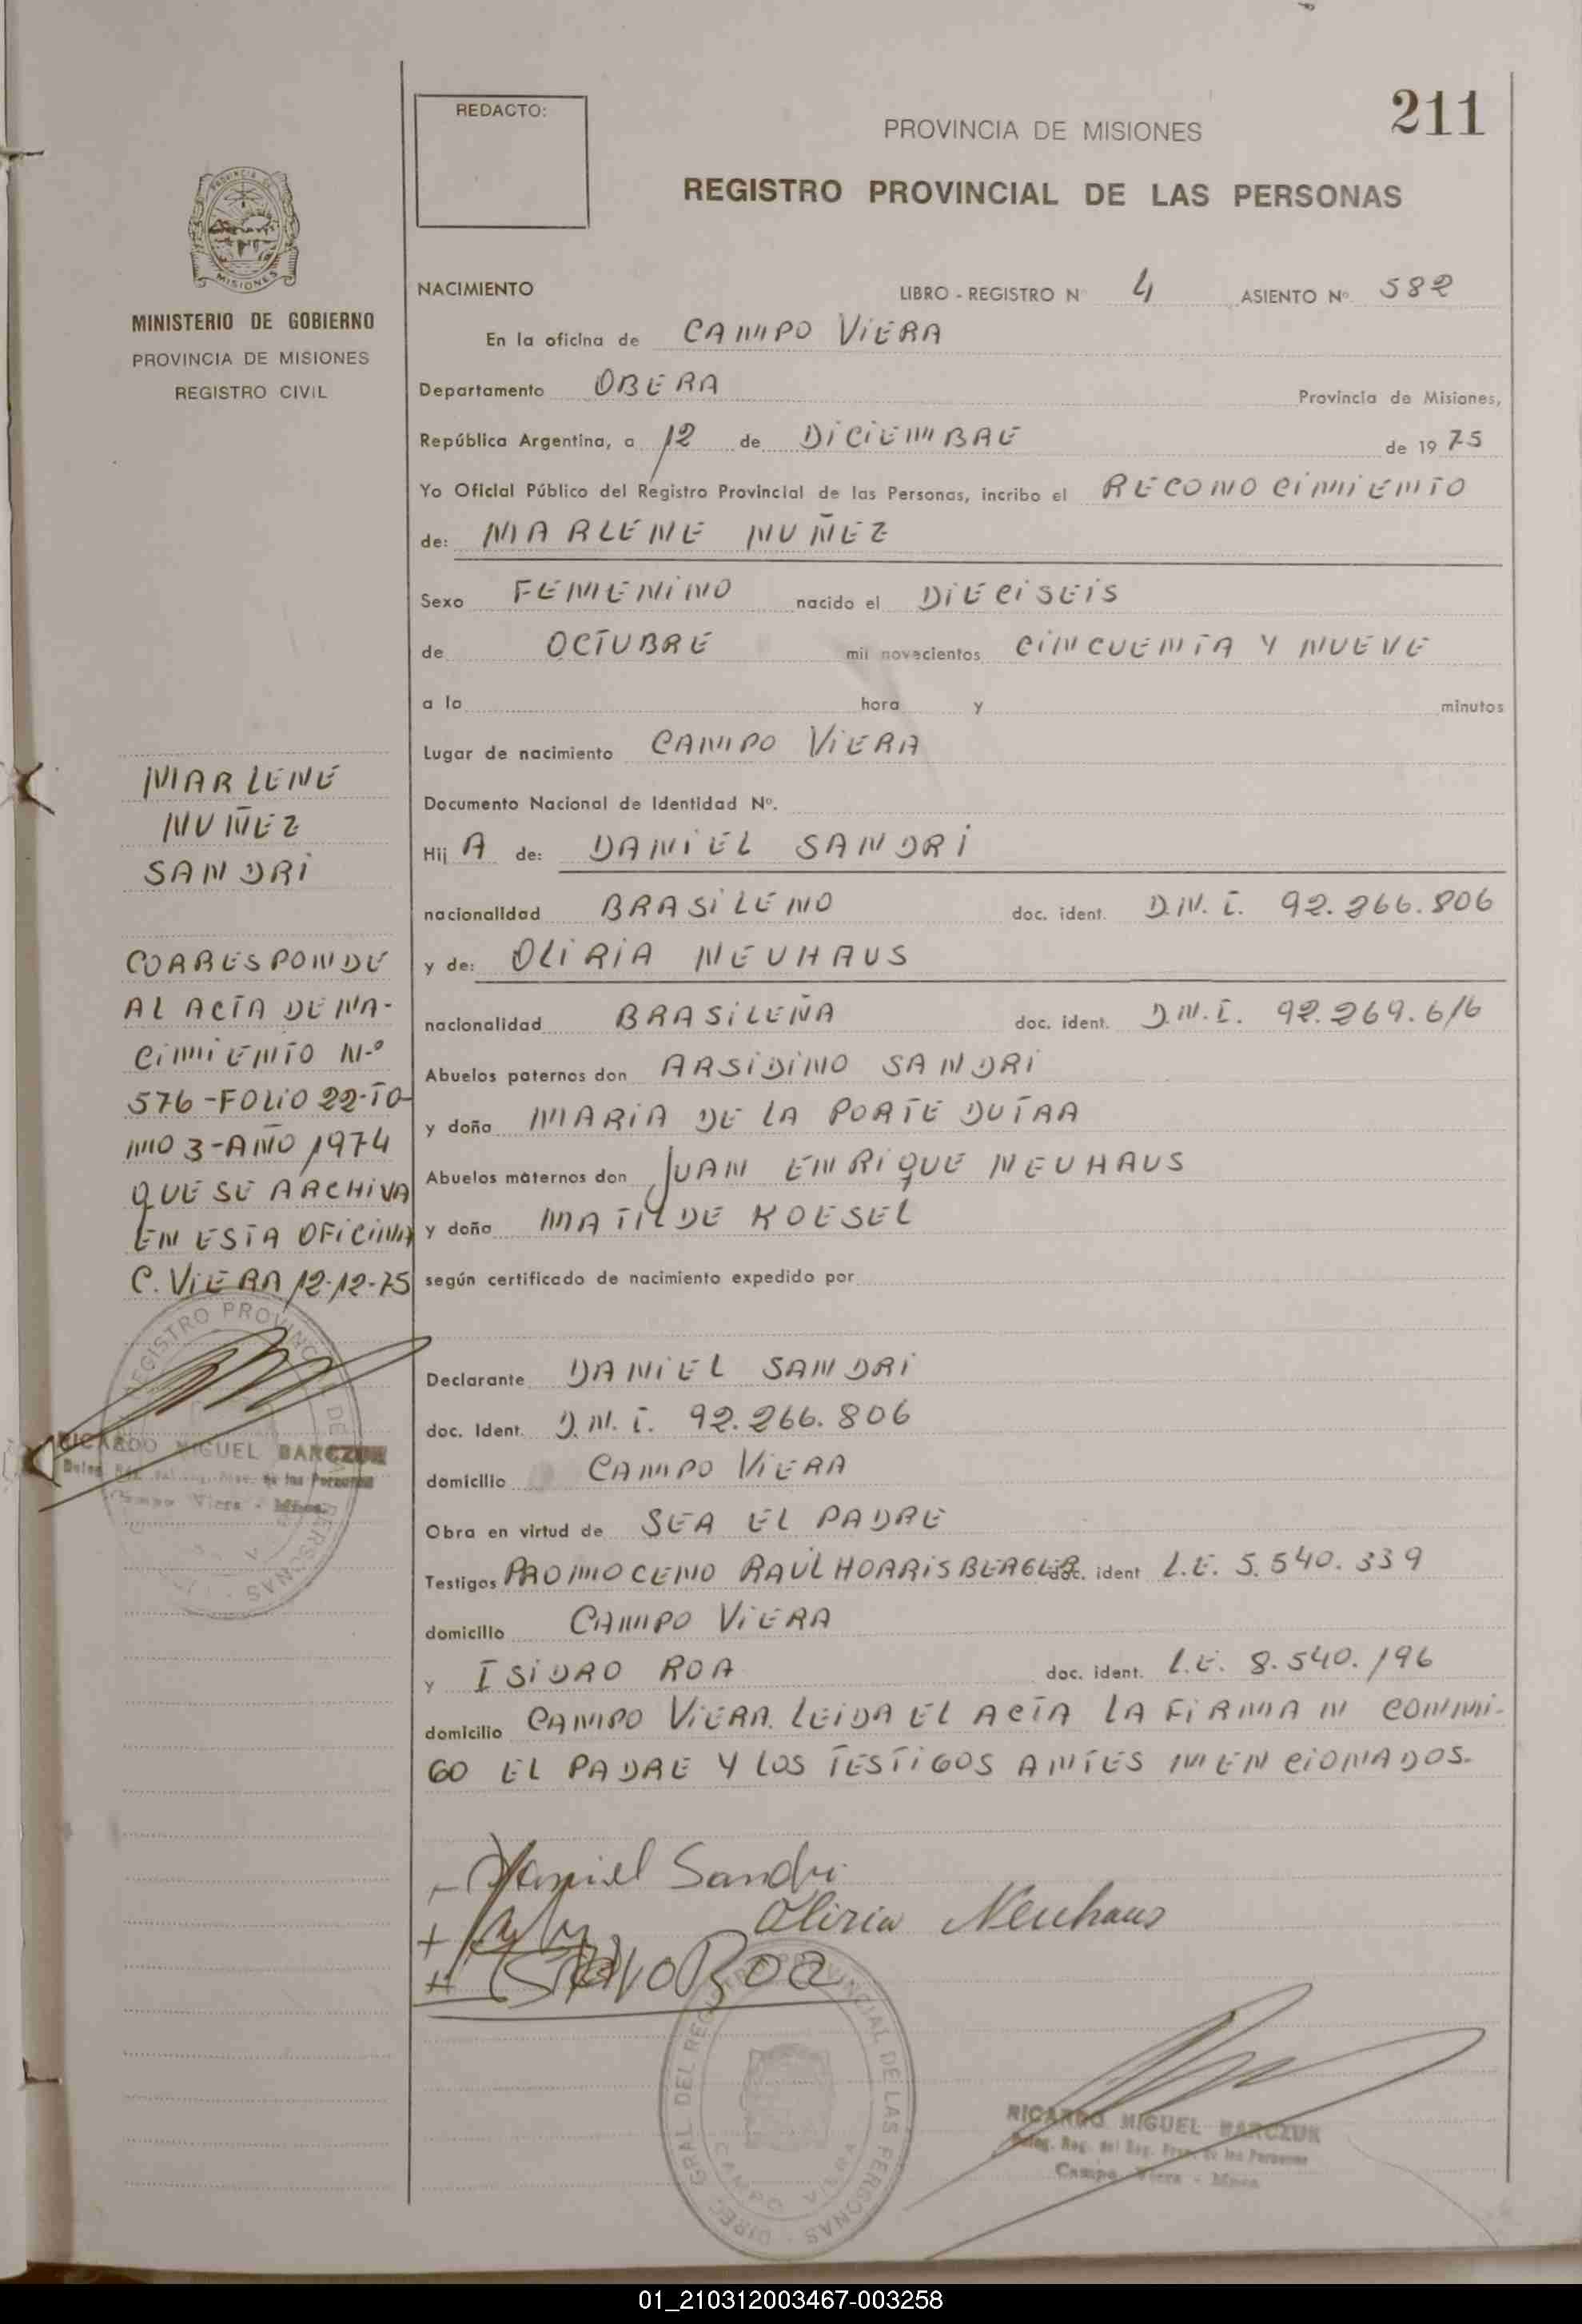 REDACTO:
211
PROVINCIA DE MISIONES
REGISTRO PROVINCIAL DE LAS PERSONAS
PROVINCIA DE
MISIONES
MINISTERIO DE GOBIERNO
PROVINCIA DE MISIONES
REGISTRO CIVIL
NACIMIENTO LIBRO - REGISTRO N 4 ASIENTO Nº 582
En la oficina de CAMPO ViERA
Departamento OBERA Provincia de Misiones,
República Argentina, a 12 de DiCiEMBRE de 1975
Yo Oficial Público del Registro Provincial de las Personas, incribo el RECONOCiMiENTO
de: MARLENE NUÑEZ
Sexo FEMENiNO nacido el DiECiSEiS
de OCTUBRE mil novecientos CiNCUENTA Y NUEVE
a la hora y minutos
Lugar de nacimiento CAMPO ViERA
Documento Nacional de Identidad Nº.
Hij A de: DANiEL SANDRi
nacionalidad BRASiLENO doc. ident. D.N.I. 92.266.806
y de: OLiRiA NEUHAUS
nacionalidad BRASiLEÑA doc. ident. D.N.I. 92.269.616
Abuelos paternos don ARSiDiNO SANDRi
y doña MARiA DE LA PORTE DUTRA
Abuelos maternos don JUAN ENRiQUE NEUHAUS
y doña MATILDE KOESEL
según certificado de nacimiento expedido por
Declarante DANiEL SANDRi
doc. Ident. D.N.I. 92.266.806
domicilio CAMPO ViERA
Obra en virtud de SEA EL PADRE
Testigos PROMOCENO RAÚL HORRiSBERGER doc. ident L.E. 5.540.339
domicilio CAMPO ViERA
y ISiDRO ROA doc. ident. L.E. 8.540.196
domicilio CAMPO ViERA. LEiDA EL ACTA LA FiRMAN CONMi-
GO EL PADRE Y LOS TESTiGOS ANTES MENCiONADOS.
MARLENE
NUÑEZ
SANDRi
CORRESPONDE
AL ACTA DE NA-
CiMiENTO N.º
576-FOLiO 22-TO-
MO 3-AÑO 1974
QUE SE ARCHiVA
EN ESTA OFiCiNA
C. ViERA 12-12-75
REGISTRO PROVINCIAL DE LAS PERSONAS
RICARDO MIGUEL BARCZUK
Campo Viera - Mnes.
Daniel Sandri
Oliria Neuhaus
ISIDRO ROA
DIREC. GRAL DEL REGISTRO PROVINCIAL DE LAS PERSONAS
CAMPO VIERA
RICARDO MIGUEL BARCZUK
Deleg. Reg. del Reg. Prov. de las Personas
Campo Viera - Mnes
01_210312003467-003258